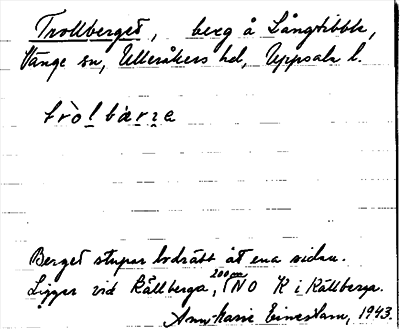 Trollberget, berg å Långtibble,
Vänge sn, Ulleråkers hd, Uppsala l.
tròl bàrɜe
Berget stupar lodrätt åt ena sidan.
Ligger vid Kållberga, 200 m NO K i Kållberga.
Ann-Marie 1943.